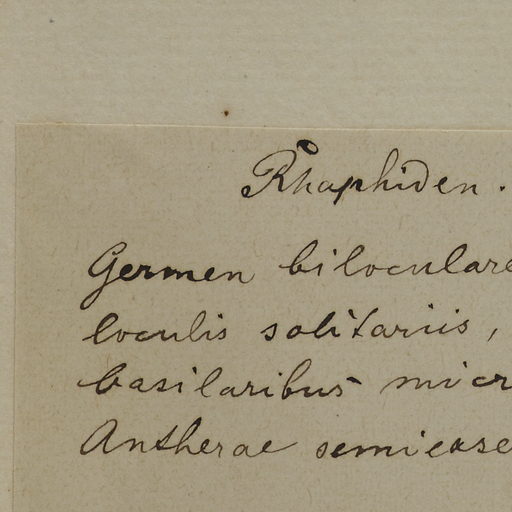 Rhaphiden.
Germen biloculare
loculis solitariis,
basilaribus micr
Antherae semiexse